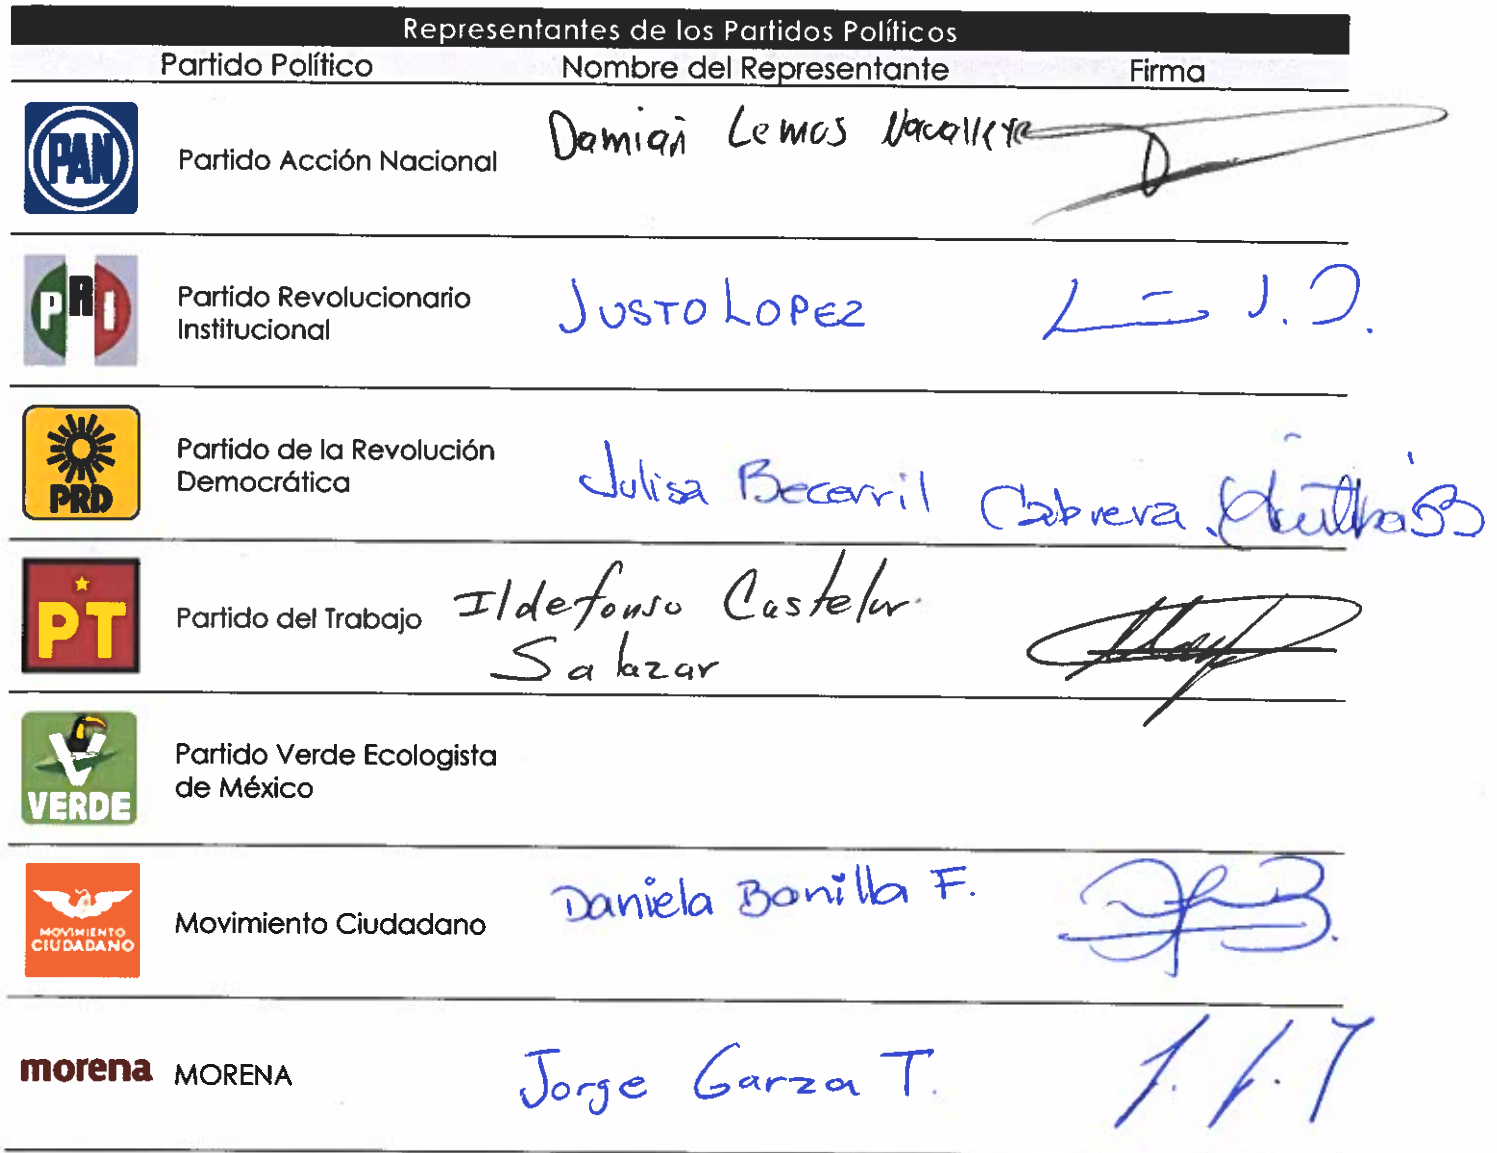 Representantes de los Partidos Políticos
Partido Político Nombre del Representante Firma
PAN Partido Acción Nacional Damian Lemos
PRI Partido Revolucionario
Institucional JUSTO LOPEZ J.
PRD Partido de la Revolución
Democrática Julisa Becerril Cabrera
PT Partido del Trabajo Ildefonso Castelar
Salazar
VERDE Partido Verde Ecologista
de México
MOVIMIENTO
CIUDADANO Movimiento Ciudadano Daniela Bonilla F.
morena MORENA Jorge Garza T.